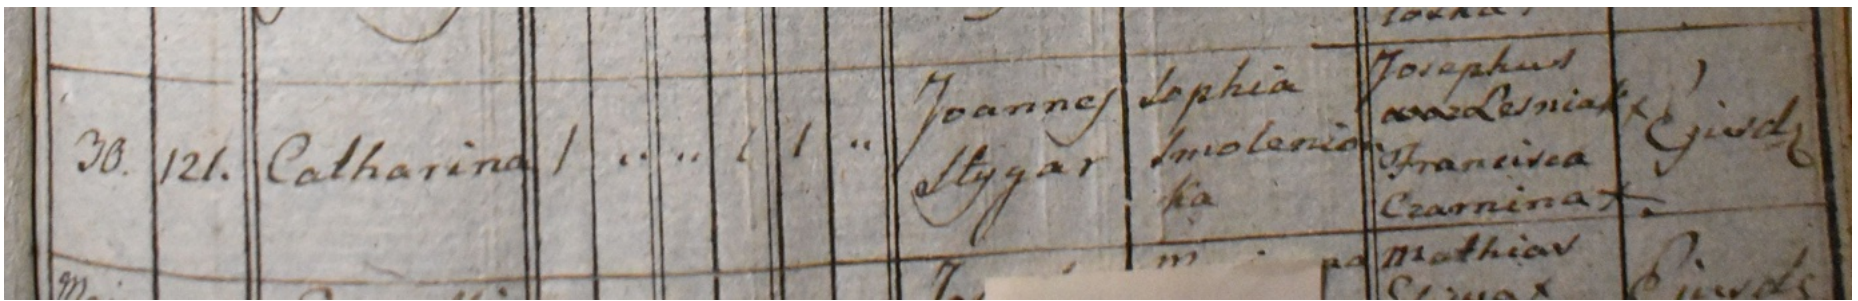 30. 121. Catharina 1 " " 1 1 "
Joannes
Stygar
Sophia
Smolenion
ka
Josephus
Lesniak x
Francisca
Czarnina x
Ejusd
Mathias
Ejusd